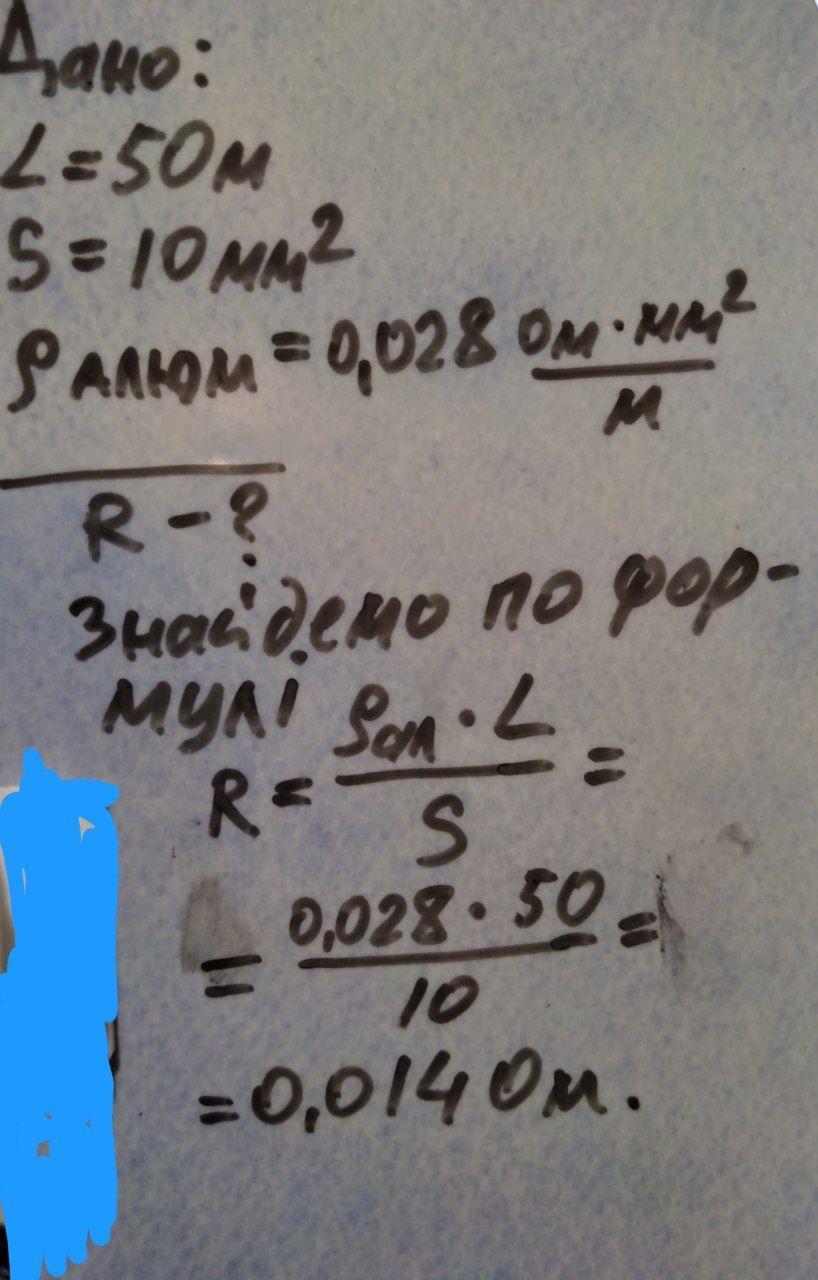 Дано:
L = 50 м
S = 10 мм²
ρ алюм = 0,028 Ом·мм²/м
R - ?
Знайдемо по фор-
мулі
R = ρал · L / S =
= 0,028 · 50 / 10 =
= 0,014 Ом.